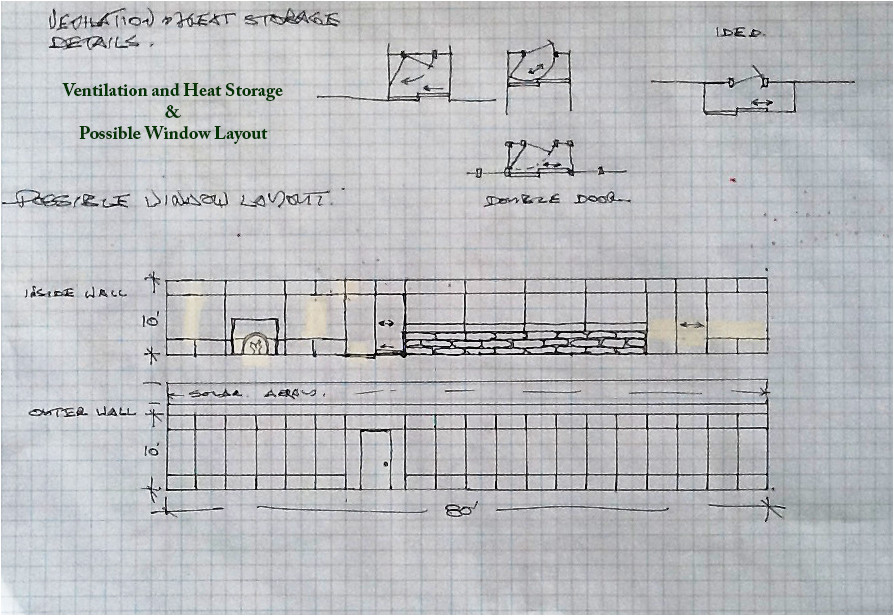 VENTILATION & HEAT STORAGE
DETAILS.
Ventilation and Heat Storage
&
Possible Window Layout
DOUBLE DOOR
POSSIBLE WINDOW LAYOUT.
INSIDE WALL
10'
SOLAR
OUTER WALL
10'
80'